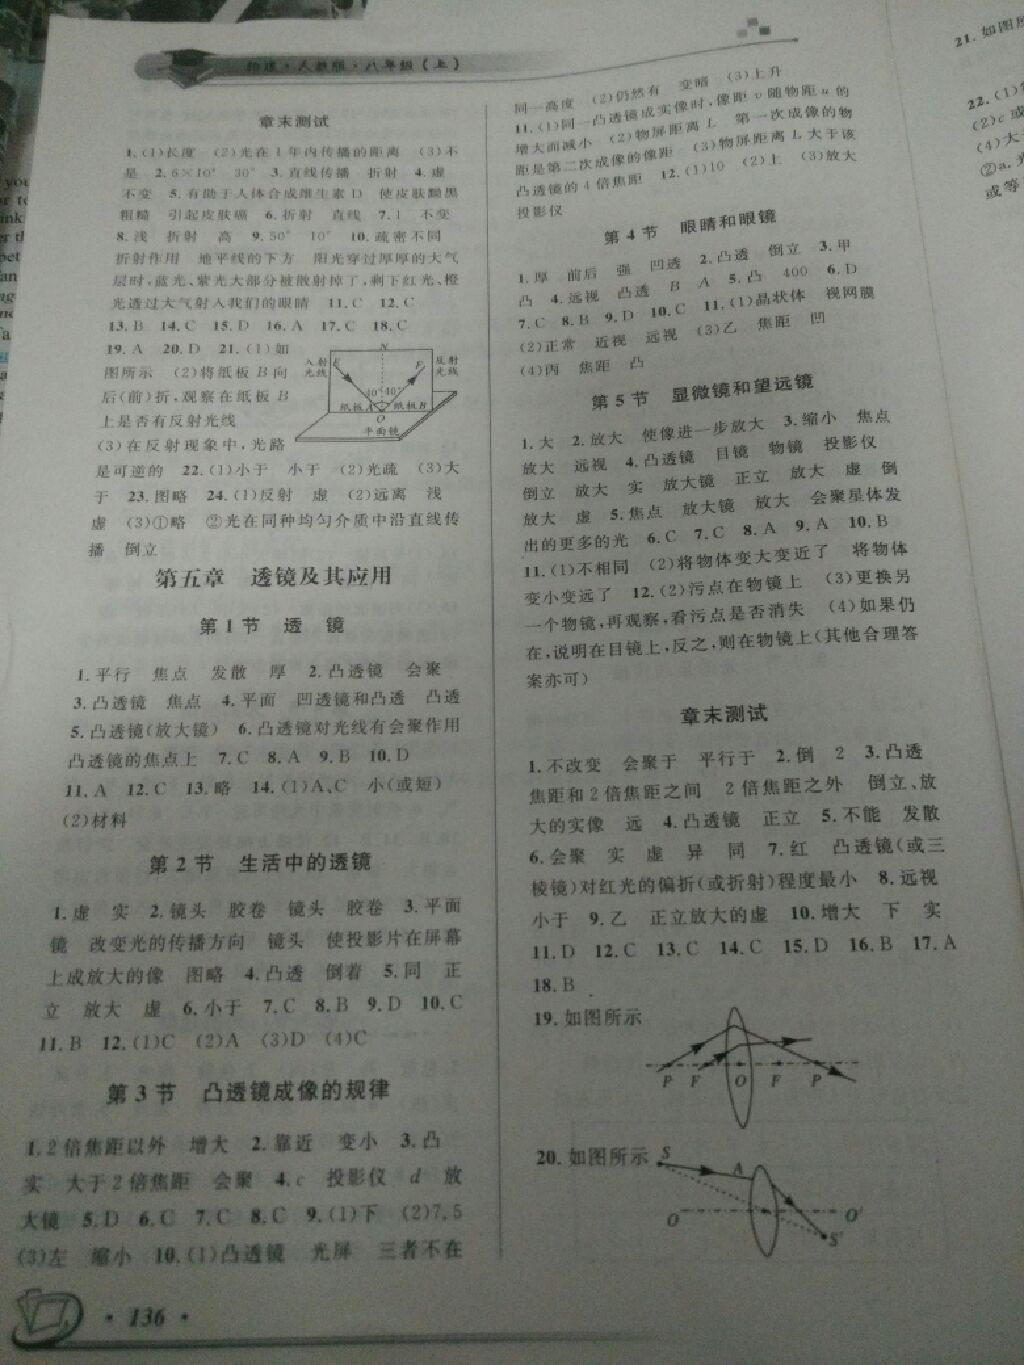 人教版·八年级(上)
章末测试
1.(1)长度 (2)光在1年内传播的距离 (3)不
是 2.6×10⁵ 30° 3.直线传播 折射 4.虚
不变 5.有助于人体合成维生素D 使皮肤黝黑
粗糙 引起皮肤癌 6.折射 直线 7.1 不变
8.浅 折射 高 9.50° 10° 10.疏密不同
折射作用 地平线的下方 阳光穿过厚厚的大气
层时,蓝光、紫光大部分被散射掉了,剩下红光、橙
光透过大气射入我们的眼睛 11.C 12.C
13.B 14.C 15.D 16.A 17.C 18.C
19.A 20.D 21.(1)如
图所示 (2)将纸板B向
后(前)折,观察在纸板B
上是否有反射光线
N
入射光线
E
F
反射光线
40° 40°
纸板A
纸板B
O
平面镜
(3)在反射现象中,光路
是可逆的 22.(1)小于 小于 (2)光疏 (3)大
于 23.图略 24.(1)反射 虚 (2)远离 浅
虚 (3)①略 ②光在同种均匀介质中沿直线传
播 倒立
第五章 透镜及其应用
第1节 透 镜
1.平行 焦点 发散 厚 2.凸透镜 会聚
3.凸透镜 焦点 4.平面 凹透镜和凸透 凸透
5.凸透镜(放大镜) 6.凸透镜对光线有会聚作用
凸透镜的焦点上 7.C 8.A 9.B 10.D
11.A 12.C 13.略 14.(1)A、C 小(或短)
(2)材料
第2节 生活中的透镜
1.虚 实 2.镜头 胶卷 镜头 胶卷 3.平面
镜 改变光的传播方向 镜头 使投影片在屏幕
上成放大的像 图略 4.凸透 倒着 5.同 正
立 放大 虚 6.小于 7.C 8.B 9.D 10.C
11.B 12.(1)C (2)A (3)D (4)C
第3节 凸透镜成像的规律
1.2倍焦距以外 增大 2.靠近 变小 3.凸
实 大于2倍焦距 会聚 4.c 投影仪 d 放
大镜 5.D 6.C 7.C 8.C 9.(1)下 (2)7.5
(3)左 缩小 10.(1)凸透镜 光屏 三者不在
·136·
同一高度 (2)仍然有 变暗 (3)上升
11.(1)同一凸透镜成实像时,像距v随物距u的
增大而减小 (2)物屏距离L 第一次成像的物
距是第二次成像的像距 (3)物屏距离L大于该
凸透镜的4倍焦距 12.(1)10 (2)上 (3)放大
投影仪
第4节 眼睛和眼镜
1.厚 前后 强 凹透 2.凸透 倒立 3.甲
凸 4.远视 凸透 B A 5.凸 400 6.D
7.C 8.B 9.D 10.C 11.(1)晶状体 视网膜
(2)正常 近视 远视 (3)乙 焦距 凹
(4)丙 焦距 凸
第5节 显微镜和望远镜
1.大 2.放大 使像进一步放大 3.缩小 焦点
放大 远视 4.凸透镜 目镜 物镜 投影仪
倒立 放大 实 放大镜 正立 放大 虚 倒
放大 虚 5.焦点 放大镜 放大 会聚星体发
出的更多的光 6.C 7.C 8.A 9.A 10.B
11.(1)不相同 (2)将物体变大变近了 将物体
变小变远了 12.(2)污点在物镜上 (3)更换另
一个物镜,再观察,看污点是否消失 (4)如果仍
在,说明在目镜上,反之,则在物镜上(其他合理答
案亦可)
章末测试
1.不改变 会聚于 平行于 2.倒 2 3.凸透
焦距和2倍焦距之间 2倍焦距之外 倒立、放
大的实像 远 4.凸透镜 正立 5.不能 发散
6.会聚 实 虚 异 同 7.红 凸透镜(或三
棱镜)对红光的偏折(或折射)程度最小 8.远视
小于 9.乙 正立放大的虚 10.增大 下 实
11.D 12.C 13.C 14.C 15.D 16.B 17.A
18.B
19.如图所示
P F O F P
20.如图所示
S
A
O
O′
S′
21.如图所
22.(1)
(2)c或
(4)大
②a.光
或等